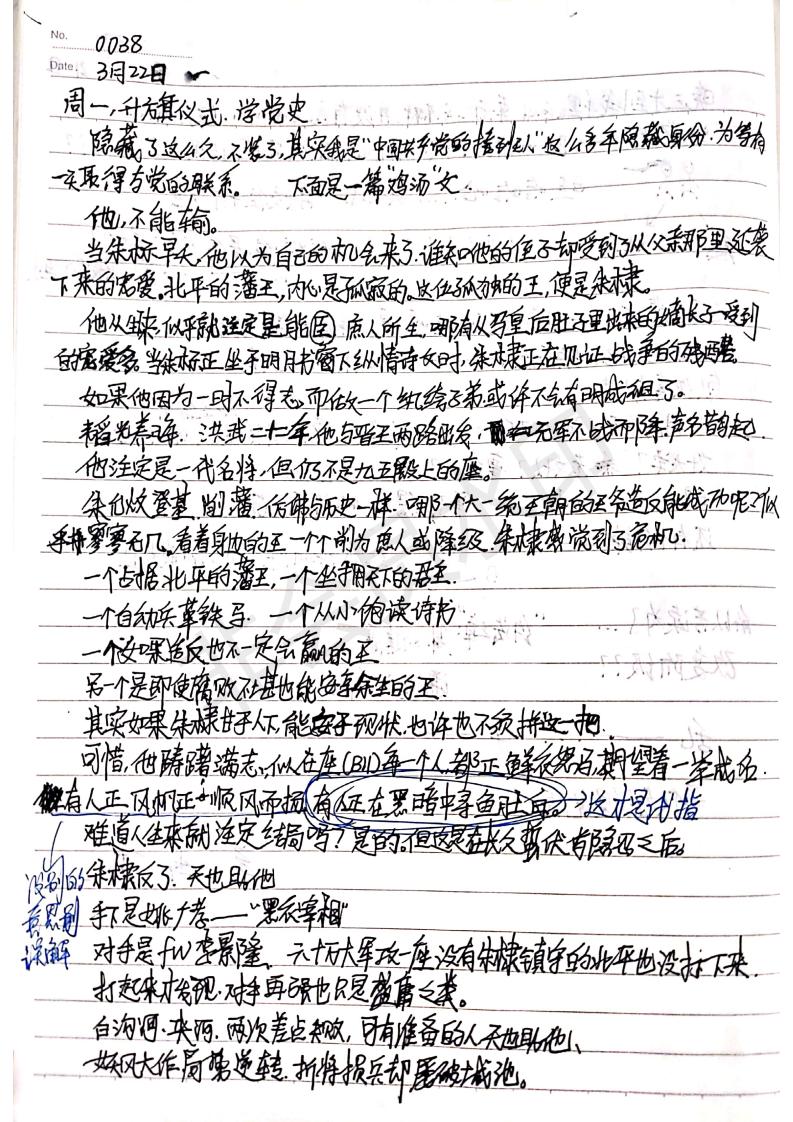 No. 0038
Date. 3月22日
周一,升旗仪式.学党史
隐藏了这么久,不装了,其实我是"中国共产党的接班人"这么多年隐藏身份.为等有
一天取得与党的联系。 下面是一篇"鸡汤"文.
他,不能输。
当朱标早夭,他以为自己的机会来了.谁知他的侄子却受到了从父亲那里延袭
下来的宠爱。北平的藩王,内心是孤寂的。这位孤独的王,便是朱棣。
他从生来似乎就注定是能臣 庶人所生,哪有从马皇后肚子里出来的嫡长子受到
的宠爱多.当朱标正坐于明月书窗下纵情诗文时,朱棣正在见证战争的残酷
如果他因为一时不得志,而做一个纨绔子弟或许不会有明成祖了。
韬光养晦.洪武二十二年,他与晋王两路出发, 元军不战而降.声名鹊起.
他注定是一代名将,但仍不是九五殿上的座。
朱允炆登基,削藩,仿佛与历史一样.哪一个大一统王朝的王爷造反能成功呢?似
乎 寥寥无几。看着身边的王一个个削为庶人或降级.朱棣感觉到了危机.
一个占据北平的藩王,一个坐拥天下的君主.
一个自幼兵革铁马. 一个从小饱读诗书
一个如果造反也不一定会赢的王
另一个是即使腐败不堪也能安享余生的王.
其实如果朱棣甘于人下,能安于现状.也许也不须拼这一把.
可惜,他踌躇满志,似在座(B11)每一个人都正鲜衣怒马,期望着一举成名.
有人正风帆正 顺风而扬,有人正在黑暗中寻鱼肚白。→这才是代指
难道人生来就注定结局吗?是的,但这是在长久蛰伏 之后。
没别的
意思别
误解
朱棣反了.天也助他
手下是姚广孝——"黑衣宰相"
对手是fw李景隆. 六十万大军攻一座没有朱棣镇守的北平也没打下来.
打起来才发现.对手再强也只是 之类。
白沟河.夹河.两次差点失败,可有准备的人天也助他、
妖风大作局势逆转.折将损兵却屡破城池。